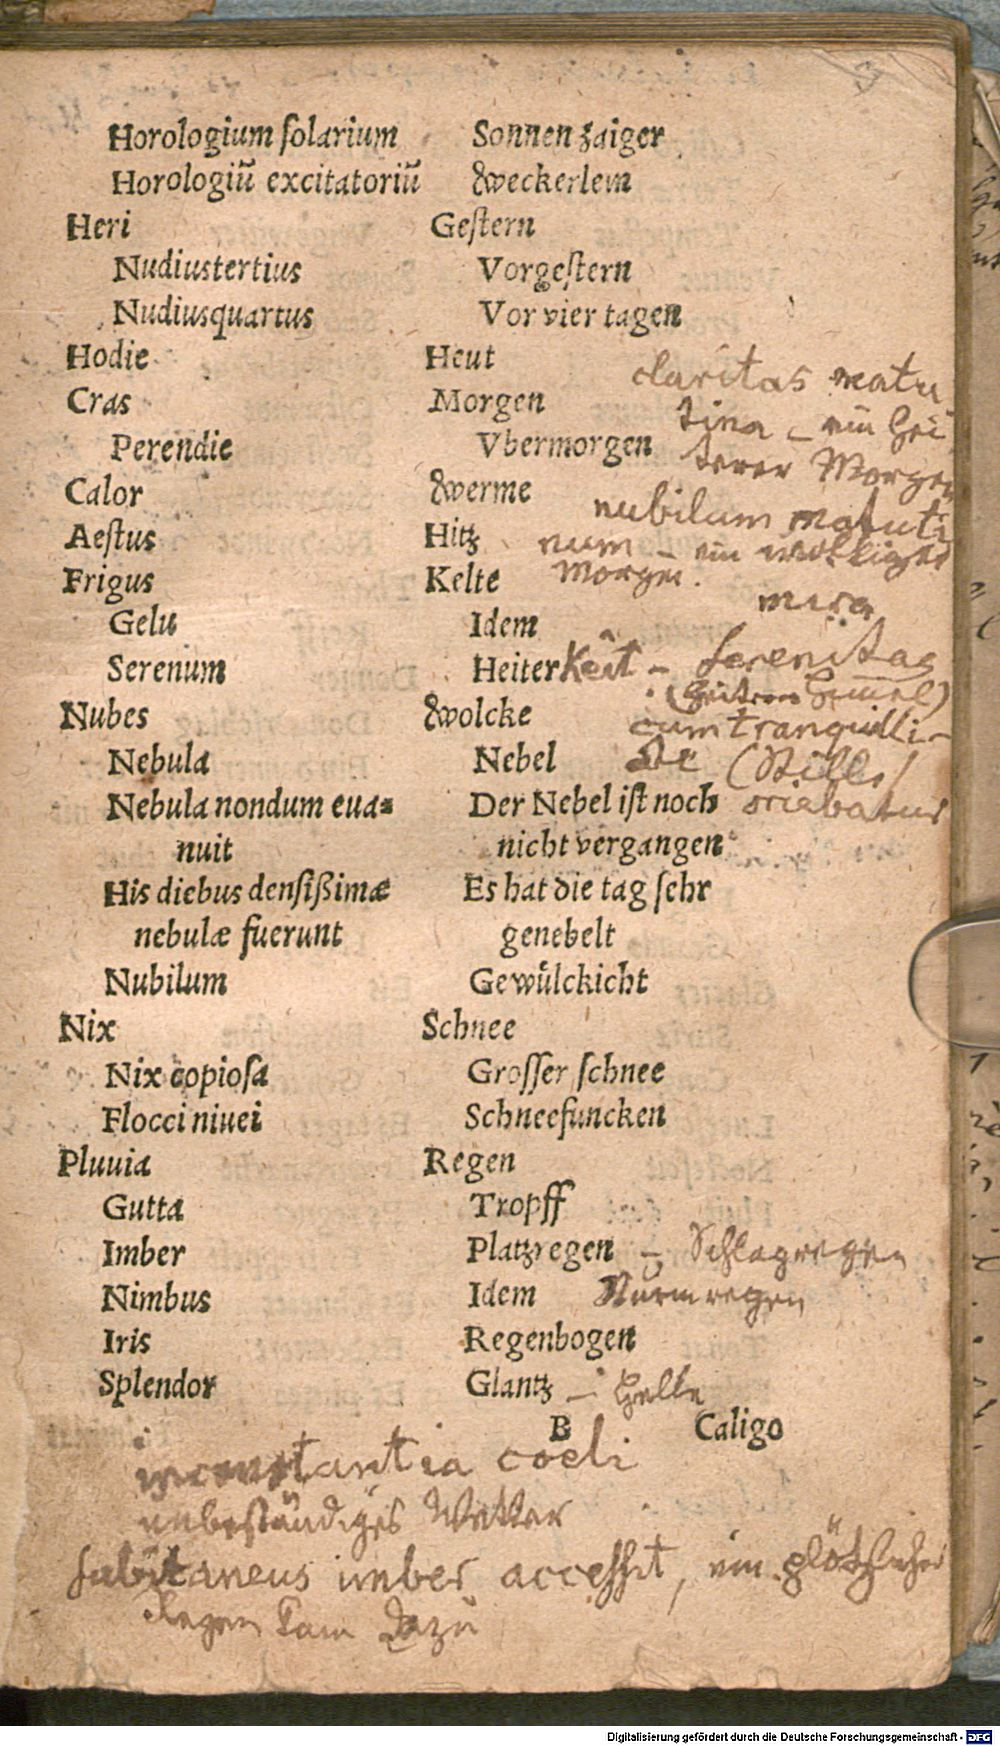 Horologium ſolarium Sonnen zaiger
Horologiũ excitatoriũ Weckerlein
Heri Geſtern
Nudiustertius Vorgeſtern
Nudiusquartus Vor vier tagen
Hodie Heut
Cras Morgen
Perendie Vbermorgen
Calor Werme
Aeſtus Hitz
Frigus Kelte
Gelu Idem
Serenum Heiter
Nubes Wolcke
Nebula Nebel
Nebula nondum eua= Der Nebel iſt noch
nuit nicht vergangen
His diebus denſiſsimæ Es hat die tag ſehr
nebulæ fuerunt genebelt
Nubilum Gewuͤlckicht
Nix Schnee
Nix copioſa Groſſer ſchnee
Flocci niuei Schneefuncken
Pluuia Regen
Gutta Tropff
Imber Platzregen – Schlagregen
Nimbus Idem Sturmregen
Iris Regenbogen
Splendor Glantz – Helle
B Caligo
claritas matu
tina – ein hei
terer Morgen
nubilum matuti
num – ein wolkiger
Morgen.
mira
Keit – serenitas
(heiterer Himmel)
cum tranquilli-
te (Stille)
oriebatur
inconstantia coeli
unbeständiges Wetter
subitaneus imber accessit, ein plötzlicher
Regen kam dazu
Digitalisierung gefördert durch die Deutsche Forschungsgemeinschaft - DFG